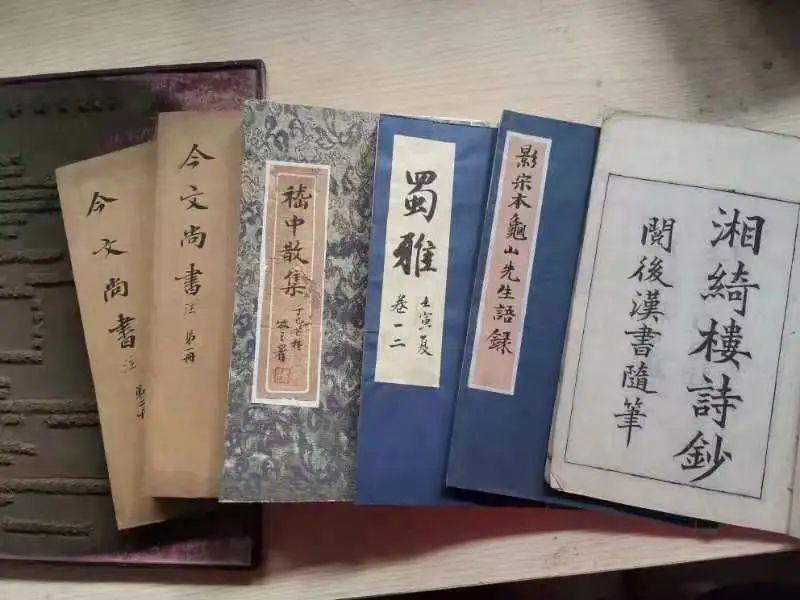 今文尚書 注
今文尚書 注 第一冊
嵇中散集
蜀雅
卷一二
壬寅夏
影宋本龜山先生語録
湘綺樓詩鈔
閱後漢書隨筆